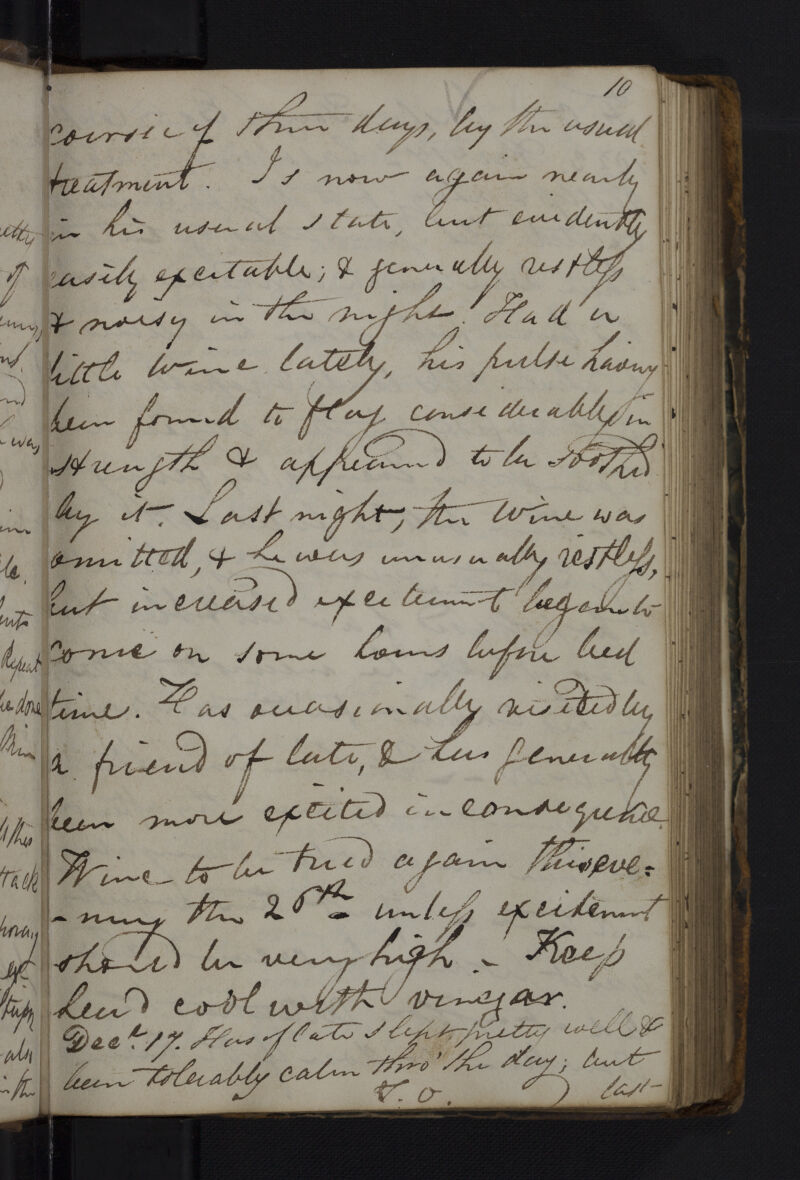 10
course of three days, by the usual
treatment. Is now again nearly
in his usual state, but evidently
easily excitable; & generally restless
& noisy in the night. Had a
little wine lately, his pulse having
been found to flag considerably in
strength & appeared to be soothed
by it. Last night, the wine was
omitted, & he was unusually restless,
but increased excitement began to
come on some hours before bed
time. Has occasionally visited by
a friend of late, & has generally
been more excited in consequence.
Wine to be tried again this eve=
-ning the 26th - unless excitement
should be very high - Keep
head cool with vinegar.
Decr. 17. Has of late slept pretty well &
been tolerably calm thro' the day; but
T. O. last
etty
of
and
was
Repeat
be done
this
tack
also
in the